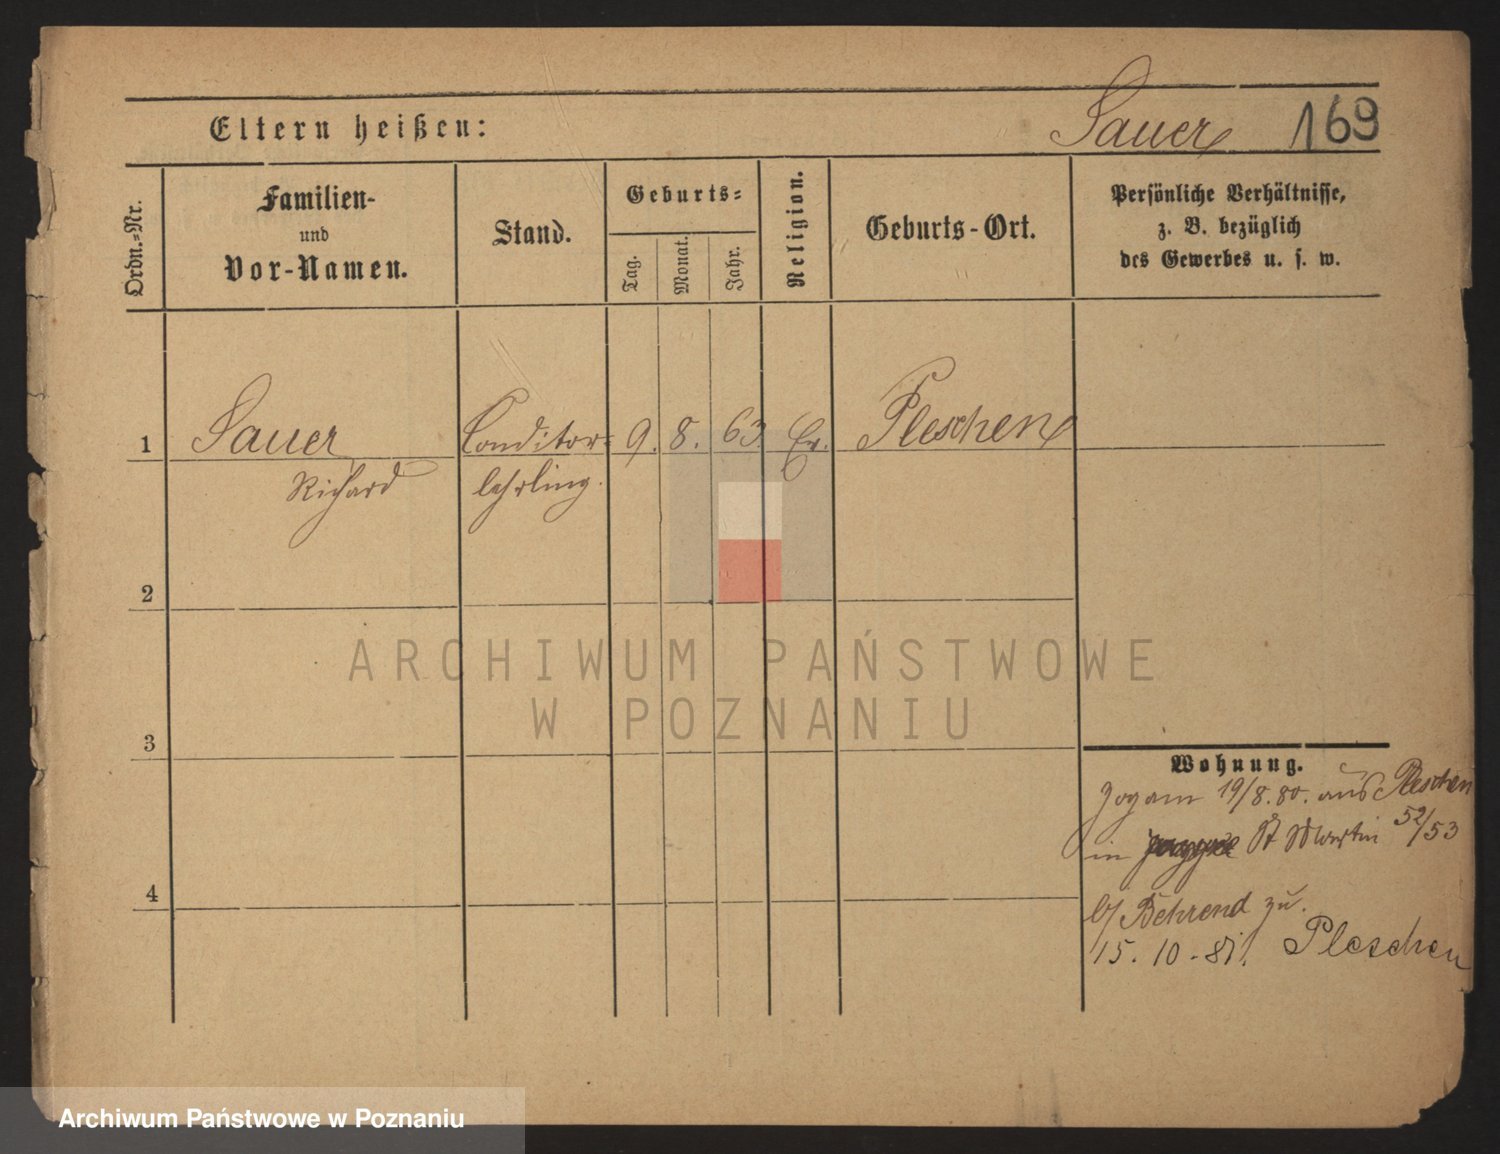 Sauer 169
Eltern heißen:
Ordn.=Nr.
Familien-
und
Vor-Namen.
Stand.
Geburts=
Tag.
Monat.
Jahr.
Religion.
Geburts-Ort.
Persönliche Verhältnisse,
z. B. bezüglich
des Gewerbes u. s. w.
1 Sauer Conditor= 9. 8. 63. Ev. Pleschen
Richard lehrling.
2
3
4
Wohnung.
Zog am 19/8.80. aus Pleschen
in St Martin 52/53
b/ Behrend zu.
15.10.81. Pleschen
ARCHIWUM PAŃSTWOWE
W POZNANIU
Archiwum Państwowe w Poznaniu